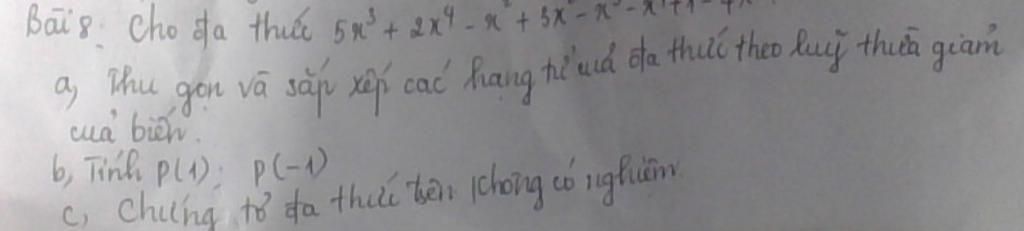 Bài 8: Cho đa thức 5x³ + 2x⁴ - x² + 3x² - x³ - x⁴ + 1 -
a, Thu gọn và sắp xếp các hạng tử của đa thức theo luỹ thừa giảm
của biến.
b, Tính P(1); P(-1)
c, Chứng tỏ đa thức trên không có nghiệm.